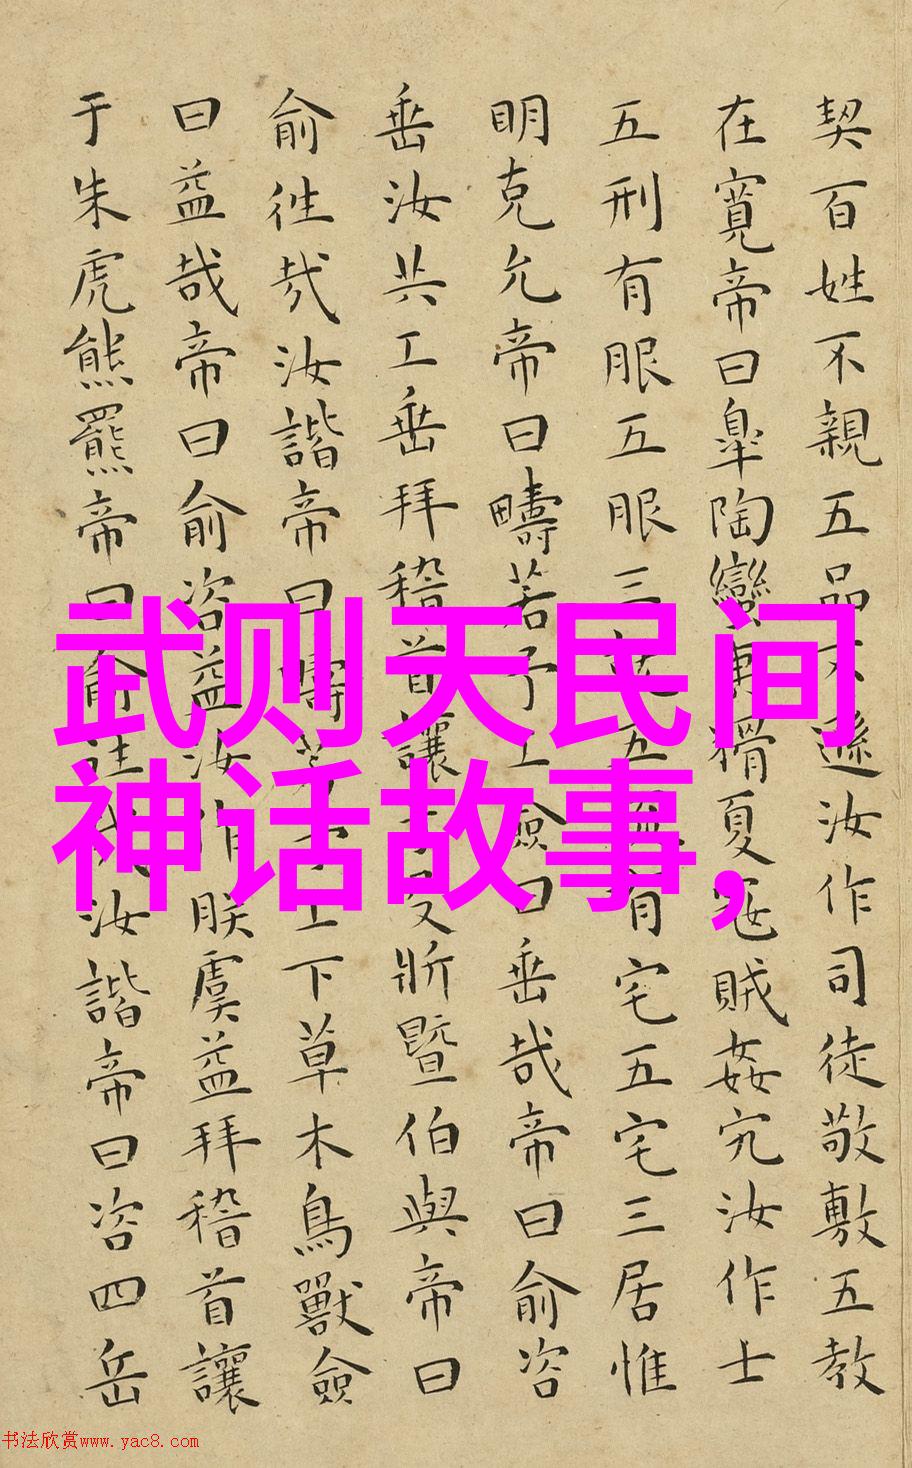 契百姓不親五品不遜汝作司徒敬敷五教
在寬帝曰皐陶蠻夷猾夏寇賊姦宄汝作士
五刑有服五服三就五流有宅五宅三居惟
明克允帝曰疇若予工僉曰垂哉帝曰俞咨
垂汝共工垂拜稽首讓于殳斨暨伯與帝曰
俞往哉汝諧帝曰疇若予上下草木鳥獸僉
曰益哉帝曰俞咨益汝作朕虞益拜稽首讓
于朱虎熊羆帝曰俞往哉汝諧帝曰咨四岳
武则天民间
神话故事,
书法欣赏www.yac8.com